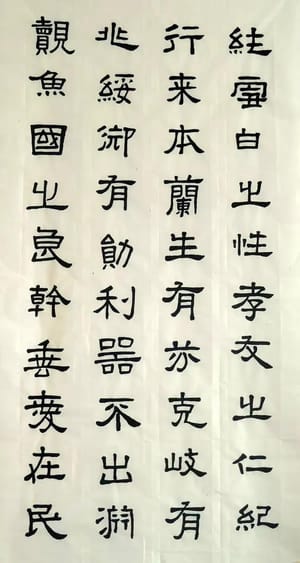 純雪白之性孝友之仁紀
行来本蘭生有芬克岐有
兆綏御有勛利器不出渊
覿魚國之良幹垂愛在民